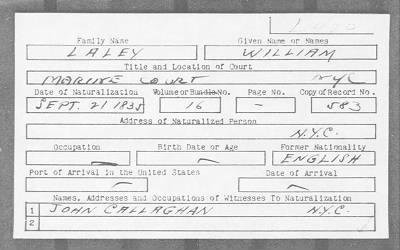 Family Name Given Name or Names
LALEY WILLIAM
Title and Location of Court
MARINE COURT NYC
Date of Naturalization Volume or Bundle No. Page No. Copy of Record No.
SEPT. 21 1835 16 - 583
Address of Naturalized Person
N.Y.C.
Occupation Birth Date or Age Former Nationality
— — ENGLISH
Port of Arrival in the United States Date of Arrival
— —
Names, Addresses and Occupations of Witnesses To Naturalization
1 JOHN CALLAGHAN N.Y.C.
2